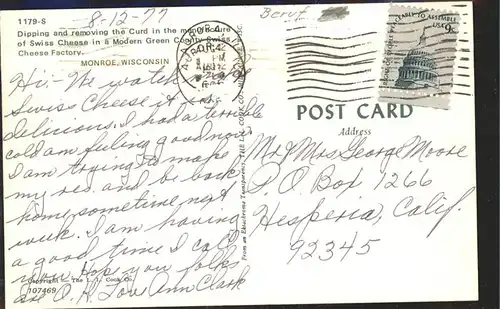 1179-S
8-12-77
Dipping and removing the Curd in the manufacture
of Swiss Cheese in a Modern Green County Swiss
Cheese Factory.
MONROE, WISCONSIN
Hi:- We watch
Swiss Cheese it
delicious. I had a terrible
cold am feeling good now.
I am trying to make
my res. and be back
home sometime next
week. I am having
a good time I call
you. Hope you folks
are O.K. Love Ann Clark
Copyright The L. L. Cook Co.
107469
From an Ektachrome Transparency THE L.L. COOK CO.
AURORA
PM
RIGHT OF PEOPLE PEACEABLY TO ASSEMBLE
USA 9c
POST CARD
Address
Mr & Mrs George Moore
P.O Box 1266
Hesperia, Calif.
92345